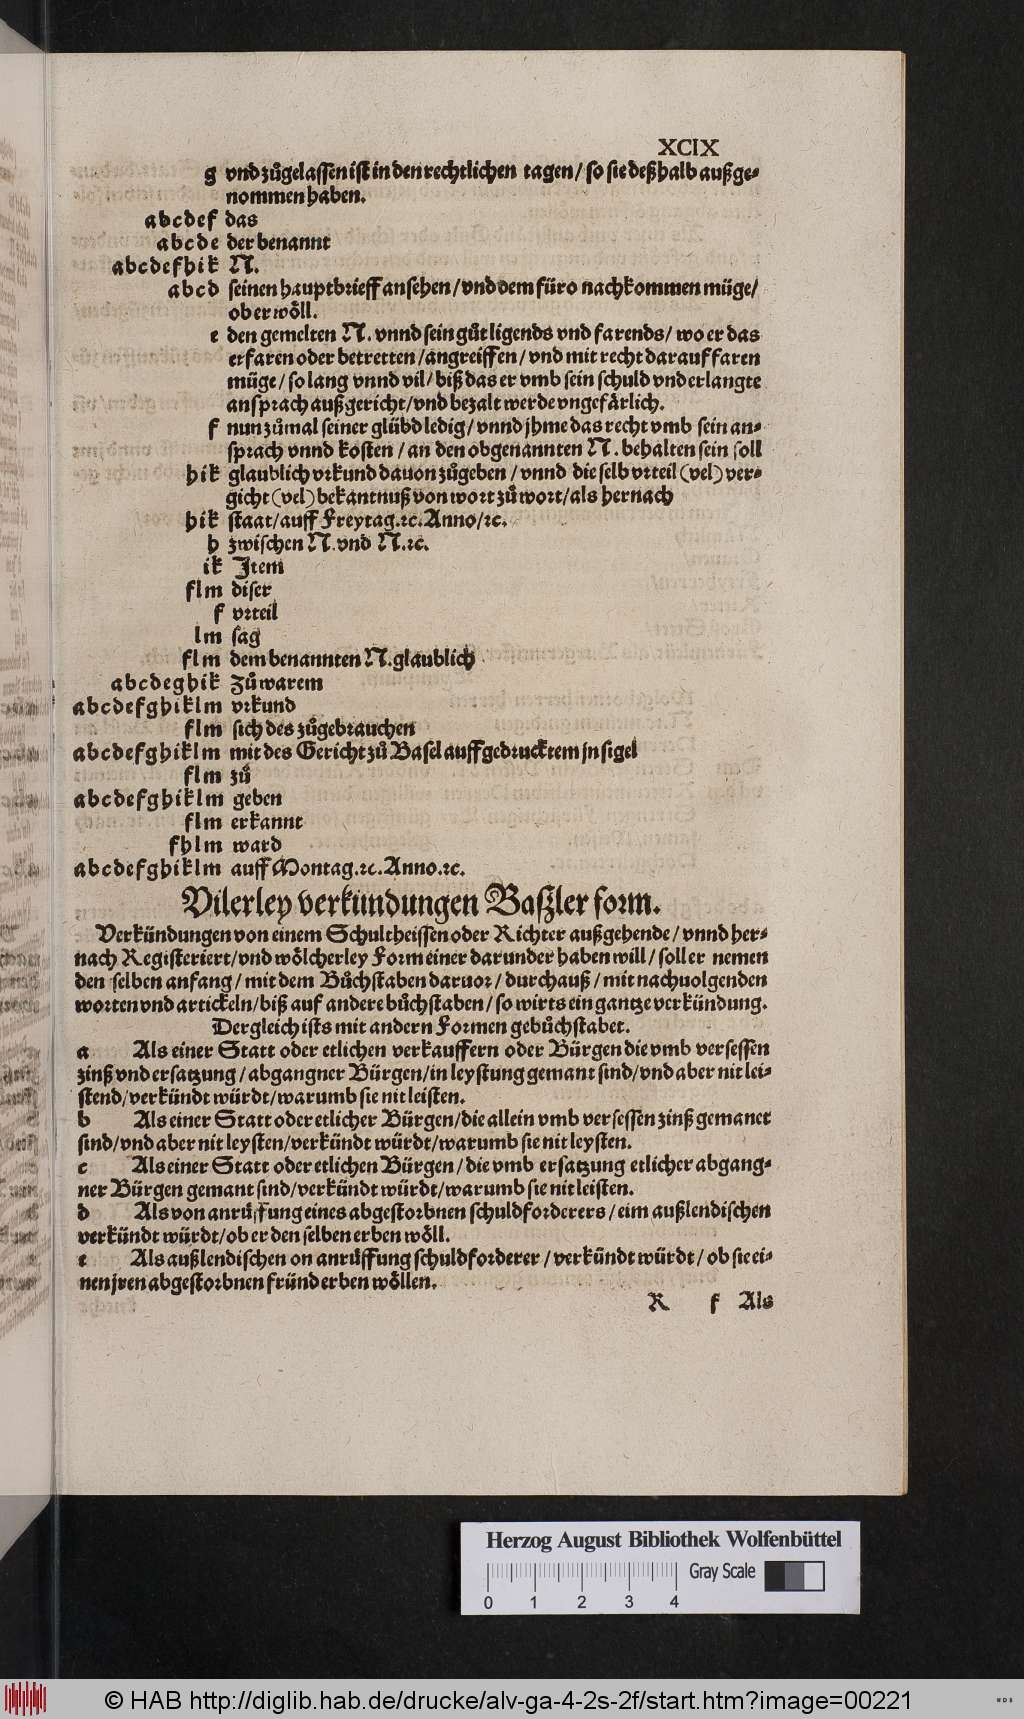 XCIX
g vnd zůgelassen ist in den rechtlichen tagen / so sie deßhalb außge-
nommen haben.
a b c d e f das
a b c d e der benannt
a b c d e f h i k N.
a b c d seinen hauptbrieff ansehen / vnd dem füro nachkommen müge /
ob er wöll.
e den gemelten N. vnnd sein gůt ligends vnd farends / wo er das
erfaren oder betretten / angreiffen / vnd mit recht darauf faren
müge / so lang vnnd vil / biß das er vmb sein schuld vnd erlangte
ansprach außgericht / vnd bezalt werde vngefärlich.
f nun zůmal seiner glübd ledig / vnnd jhme das recht vmb sein an-
sprach vnnd kosten / an den obgenannten N. behalten sein soll
h i k glaublich vrkund dauon zůgeben / vnnd die selb vrteil (vel) ver-
gicht (vel) bekantnuß von wort zů wort / als hernach
h i k staat / auff Freytag. ꝛc. Anno / ꝛc.
h zwischen N. vnd N. ꝛc.
i k Item
f l m diser
f vrteil
l m sag
f l m dem benannten N. glaublich
a b c d e g h i k Zů warem
a b c d e f g h i k l m vrkund
f l m sich des zůgebrauchen
a b c d e f g h i k l m mit des Gericht zů Basel auffgedrucktem jnsigel
f l m zů
a b c d e f g h i k l m geben
f l m erkannt
f h l m ward
a b c d e f g h i k l m auff Montag. ꝛc. Anno. ꝛc.
Vilerley verkündungen Baßler form.
Verkündungen von einem Schultheissen oder Richter außgehende / vnnd her-
nach Registeriert / vnd wölcherley Form einer darunder haben will / soll er nemen
den selben anfang / mit dem Bůchstaben daruor / durchauß / mit nachuolgenden
worten vnd artickeln / biß auf andere bůchstaben / so wirts ein gantze verkündung.
Dergleich ists mit andern Formen gebůchstabet.
a Als einer Statt oder etlichen verkauffern oder Bürgen die vmb versessen
zinß vnd ersatzung / abgangner Bürgen / in leystung gemant sind / vnd aber nit lei-
stend / verkündt würdt / warumb sie nit leisten.
b Als einer Statt oder etlicher Bürgen / die allein vmb versessen zinß gemanet
sind / vnd aber nit leysten / verkündt würdt / warumb sie nit leysten.
c Als einer Statt oder etlichen Bürgen / die vmb ersatzung etlicher abgang-
ner Bürgen gemant sind / verkündt würdt / warumb sie nit leisten.
d Als von anrůffung eines abgestorbnen schuldforderers / eim außlendischen
verkündt würdt / ob er den selben erben wöll.
e Als außlendischen on anrůffung schuldforderer / verkündt würdt / ob sie ei-
nen jren abgestorbnen fründ erben wöllen.
R f Als
Herzog August Bibliothek Wolfenbüttel
Gray Scale
0 1 2 3 4
© HAB http://diglib.hab.de/drucke/alv-ga-4-2s-2f/start.htm?image=00221